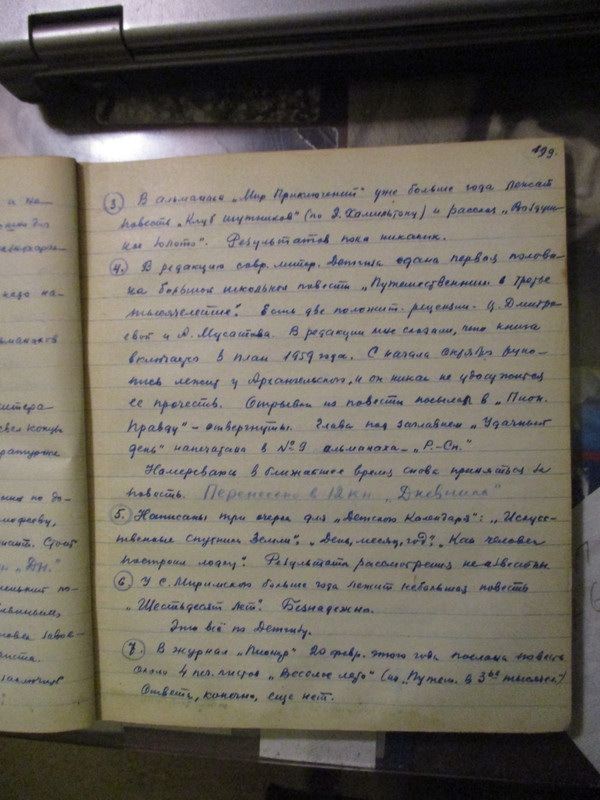 199.
и на-
надо на-
льманахов
свел концы
рамфееву,
иант. Стоит
"Дн."
3. В альманахе „Мир Приключений" уже больше года лежат
повесть „Клуб шутников" (по Э. Хамильтону) и рассказ „Воздуш-
ное золото". Результатов пока никаких.
4. В редакцию совр. литер. Детгиза сдана первая полови-
на большой школьной повести „Путешественники в третье
тысячелетие". Есть две положит. рецензии - Ц. Дмитри-
евой и А. Мусатова. В редакции мне сказали, что книга
включена в план 1959 года. С начала октября руко-
пись лежит у Архангельского, и он никак не удосужится
её прочесть. Отрывки из повести посылал в „Пион.
Правду" - отвергнуты. Глава под заглавием „Удачный
день" напечатана в №9 альманаха „Р.-Сп."
Намереваюсь в ближайшее время снова приняться за
повесть. Перенесено в 12 кн. „Дневника"
5. Написаны три очерка для „Детского Календаря": „Искусс-
твенные спутники Земли", „День, месяц, год", „Как человек
построил лодку". Результаты рассмотрения неизвестны.
6. У С. Миримского больше года лежит небольшая повесть
„Шестьдесят лет". Безнадежно.
Это всё по Детгизу.
7. В журнал „Пионер" 20 февр. этого года послана повесть
около 4 печ. листов „Веселое лето" (из „Путеш. в 3ье тысячел.")
Ответа, конечно, еще нет.